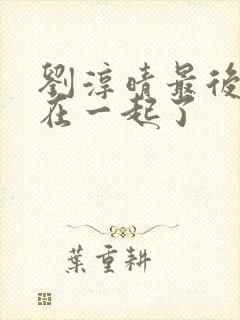 劉淳晴最後
在一起了
葉重耕